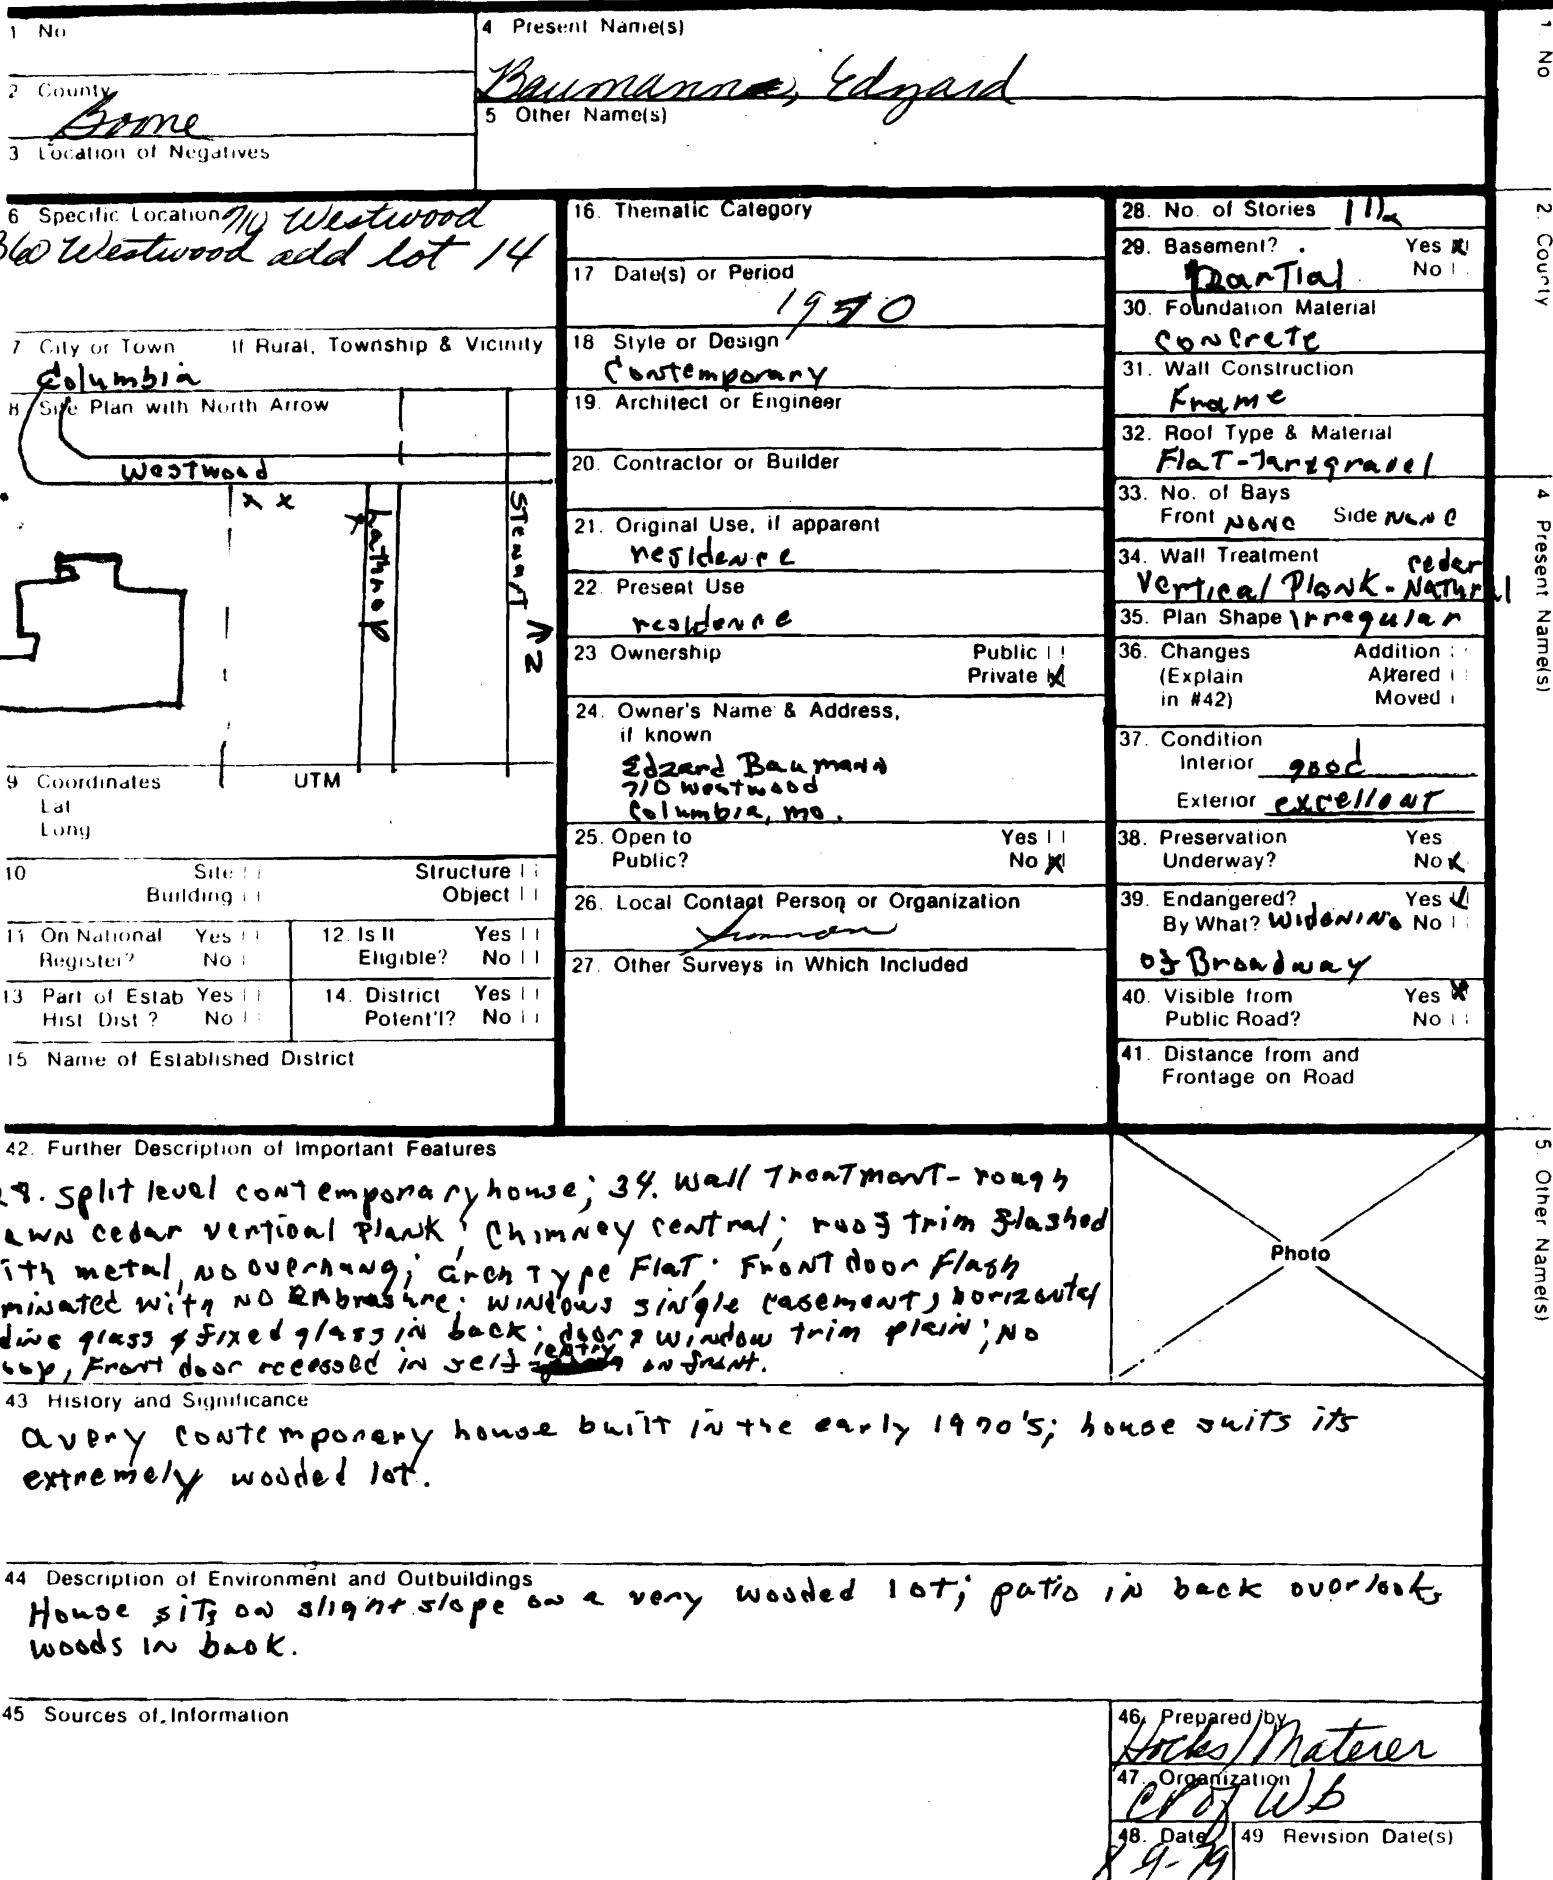 1 No
4 Present Name(s)
Baumann, Edzard
2 County
Boone
5 Other Name(s)
3 Location of Negatives
6 Specific Location 710 Westwood
360 Westwood add lot 14
7 City or Town If Rural, Township & Vicinity
Columbia
8 Site Plan with North Arrow
Westwood
x x
x
Lathrop
Stewart
N
9 Coordinates UTM
Lat
Long
10 Site Structure
Building Object
11 On National Register? Yes No
12. Is It Eligible? Yes No
13 Part of Estab Hist Dist? Yes No
14. District Potent'l? Yes No
15 Name of Established District
16. Thematic Category
17 Date(s) or Period
1970
18 Style or Design
Contemporary
19. Architect or Engineer
20. Contractor or Builder
21. Original Use, if apparent
residence
22. Present Use
residence
23 Ownership Public
Private X
24. Owner's Name & Address,
if known
Edzard Baumann
710 westwood
Columbia, mo.
25. Open to Yes
Public? No X
26. Local Contact Person or Organization
27. Other Surveys in Which Included
28. No. of Stories 1 1/2
29. Basement? Yes X
partial No
30. Foundation Material
concrete
31. Wall Construction
Frame
32. Roof Type & Material
Flat-Tar&gravel
33. No. of Bays
Front None Side None
34. Wall Treatment cedar
Vertical Plank-Natural
35. Plan Shape Irregular
36. Changes Addition
(Explain Altered
in #42) Moved
37. Condition
Interior good
Exterior excellent
38. Preservation Yes
Underway? No X
39. Endangered? Yes ✓
By What? Widening No
of Broadway
40. Visible from Yes X
Public Road? No
41. Distance from and
Frontage on Road
42. Further Description of Important Features
28. split level contemporary house; 34. Wall Treatment- rough
awn cedar vertical plank; Chimney central; roof trim flashed
ith metal, no overhang; arch type Flat; Front door flash
minated with no embrasure; windows single casement, horizontal
ding glass & fixed glass in back; door & window trim plain; No
oop, Front door recessed in self entry on front.
Photo
43 History and Significance
a very contemporary house built in the early 1970's; house suits its
extremely wooded lot.
44 Description of Environment and Outbuildings
House sits on slight slope on a very wooded lot; patio in back overlooks
woods in back.
45 Sources of Information
46. Prepared by
Hocks/Materer
47. Organization
48. Date 49 Revision Date(s)
9-79
1 No
2. County
4 Present Name(s)
5. Other Name(s)